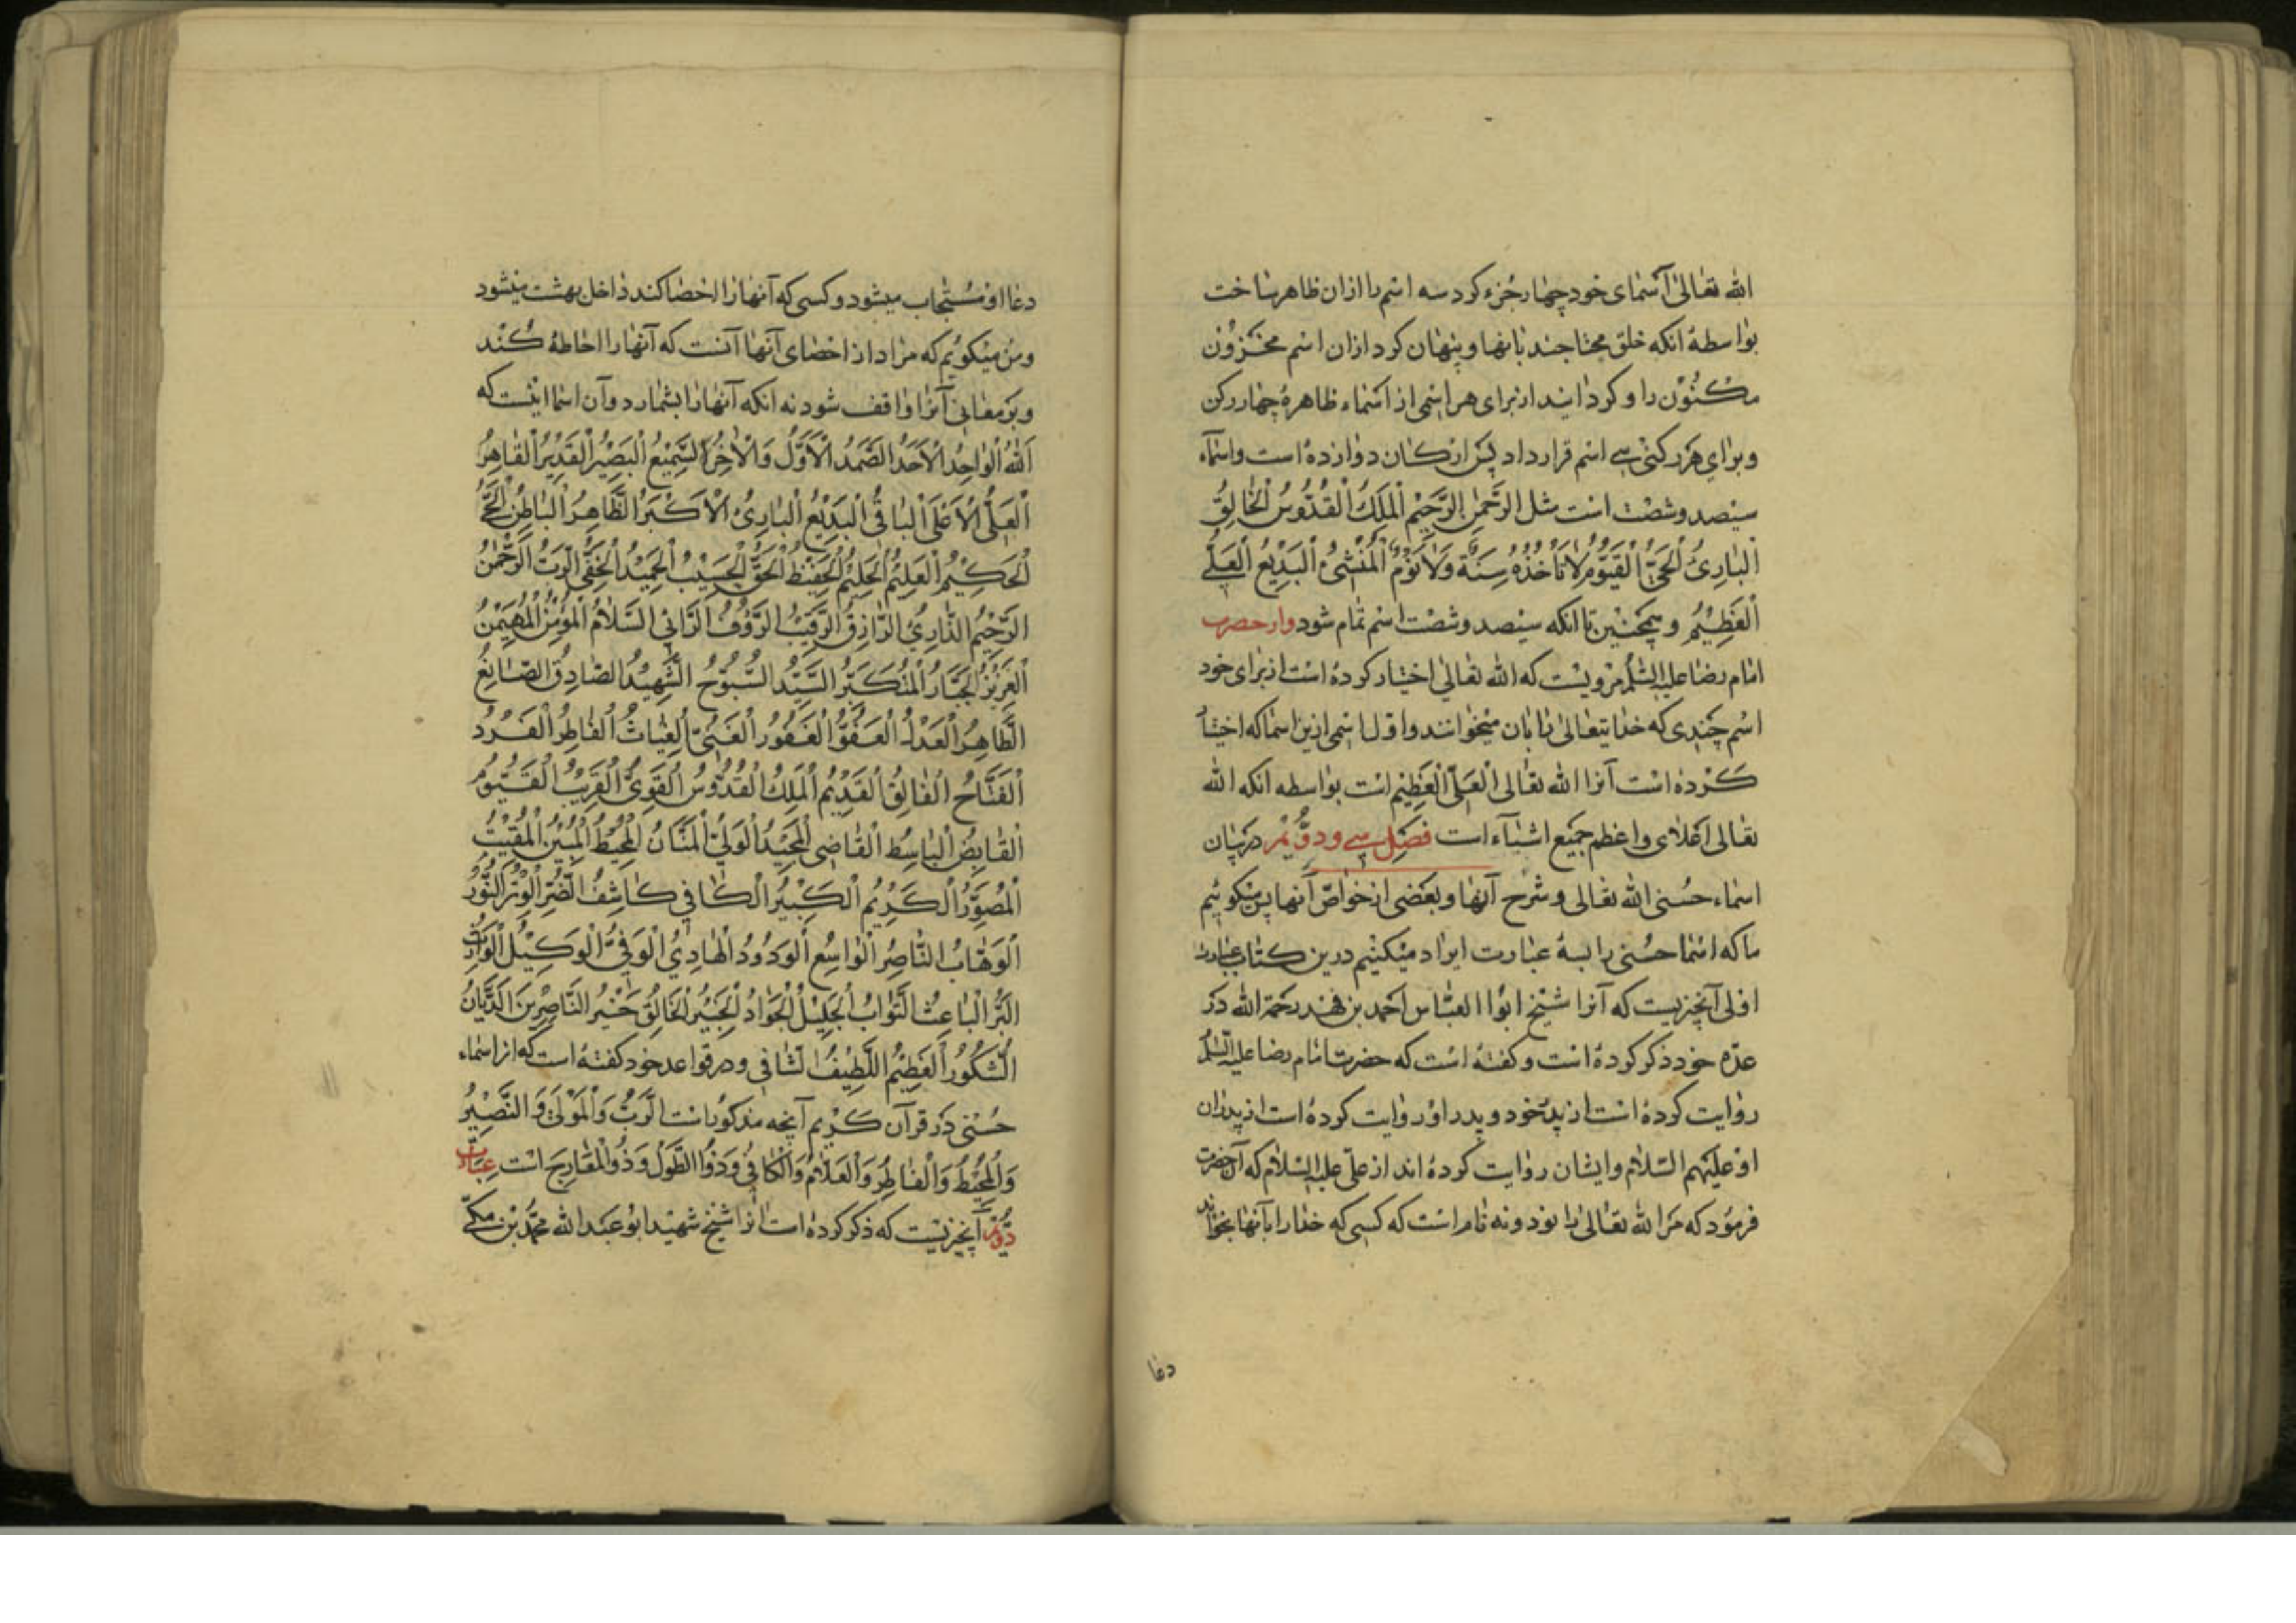 الله تعالی آسمای خود چهار جزء کرد سه اسم را ازان ظاهر ساخت
بواسطهٔ انکه خلق محتاجند بانها و پنهان کرد ازان اسم مخزون
مکنون را و کردانید از برای هر اسمی از اسماء ظاهره چهار رکن
و برای هر رکنی سی اسم قرار داد پس ارکان دوازده است و اسماء
سیصد و شصت است مثل الرَّحمن الرَّحیم الملک القدّوس الخالق
البارئ الحیّ القیّوم لا تأخذه سنة ولا نوم المنشئ البدیع العلی
العظیم و همچنین تا انکه سیصد و شصت اسم تمام شود و از حضرت
امام رضا علیه السلم مرویست که الله تعالی اختیار کرده است از برای خود
اسم چندی که خدایتعالی را بان میخوانند و اول اسمی ازین اسما که اختیار
کرده است آنرا الله تعالی العلی العظیم است بواسطه انکه الله
تعالی اعلای و اعظم جمیع اشیاء است فصل سی و دویم در بیان
اسماء حسنی الله تعالی و شرح آنها و بعضی از خواصّ آنها پس میکوئیم
ما که اسما حسنی را بسه عبارت ایراد میکنیم درین کتاب عبارت
اولی آنچیزیست که آنرا شیخ ابوا العباس احمد بن فهد رحمة الله در
عدّه خود ذکر کرده است و کفته است که حضرت امام رضا علیه السلم
روایت کرده است از پدر خود و پدر او روایت کرده است از پدران
او علیهم السّلام و ایشان روایت کرده اند از علیّ علیه السلام که آن حضرت
فرمود که مر الله تعالی را نود و نه نام است که کسی که خدا را بآنها بخواند
دعا
دعا او مستجاب میشود و کسی که آنها را احصا کند داخل بهشت میشود
و من میکویم که مراد از احصای آنها آنست که آنها را احاطه کند
و بر معانی آنرا واقف شود نه انکه آنها را بشمارد و آن اسما اینست که
اَللهُ الْواحِدُ الاَحَدُ الصَّمَدُ الاَوَّلُ وَالاخِرُ السَّمیعُ الْبَصیرُ القَدیرُ القاهِرُ
العلیّ الاعلی الباقی البدیع البارئ الاکبر الظاهر الباطن الحی
الحکیم العلیم الحلیم الحفیظ الحقّ الحسیب الحمید الخفی الربّ الرحمن
الرحیم الذارئ الرازق الرقیب الرؤوف الرائی السلام المؤمن المهیمن
العزیز الجبار المتکبر السید السبوح الشهید الصادق الصانع
الطاهر العدل العفوّ الغفور الغنی الغیاث الفاطر الفرد
الفتاح الفالق القدیم الملک القدوس القوی القریب القیوم
القابض الباسط القاضی المجید الولی المنان المحیط المبین المقیت
المصور الکریم الکبیر الکافی کاشف الضر الوتر النور
الوهاب الناصر الواسع الودود الهادی الوفی الوکیل الوارث
البر الباعث التواب الجلیل الجواد الخبیر الخالق خیر الناصرین الدیان
الشکور العظیم اللطیف الشافی و در قواعد خود کفته است که از اسماء
حسنی در قرآن کریم آنچه مذکور است الرب والمولی والنصیر
والمحیط والفاطر والعلام والکافی وذو الطول وذو المعارج است عبارت
دویم آنچیزیست که ذکر کرده است انرا شیخ شهید ابو عبد الله محمد بن مکی